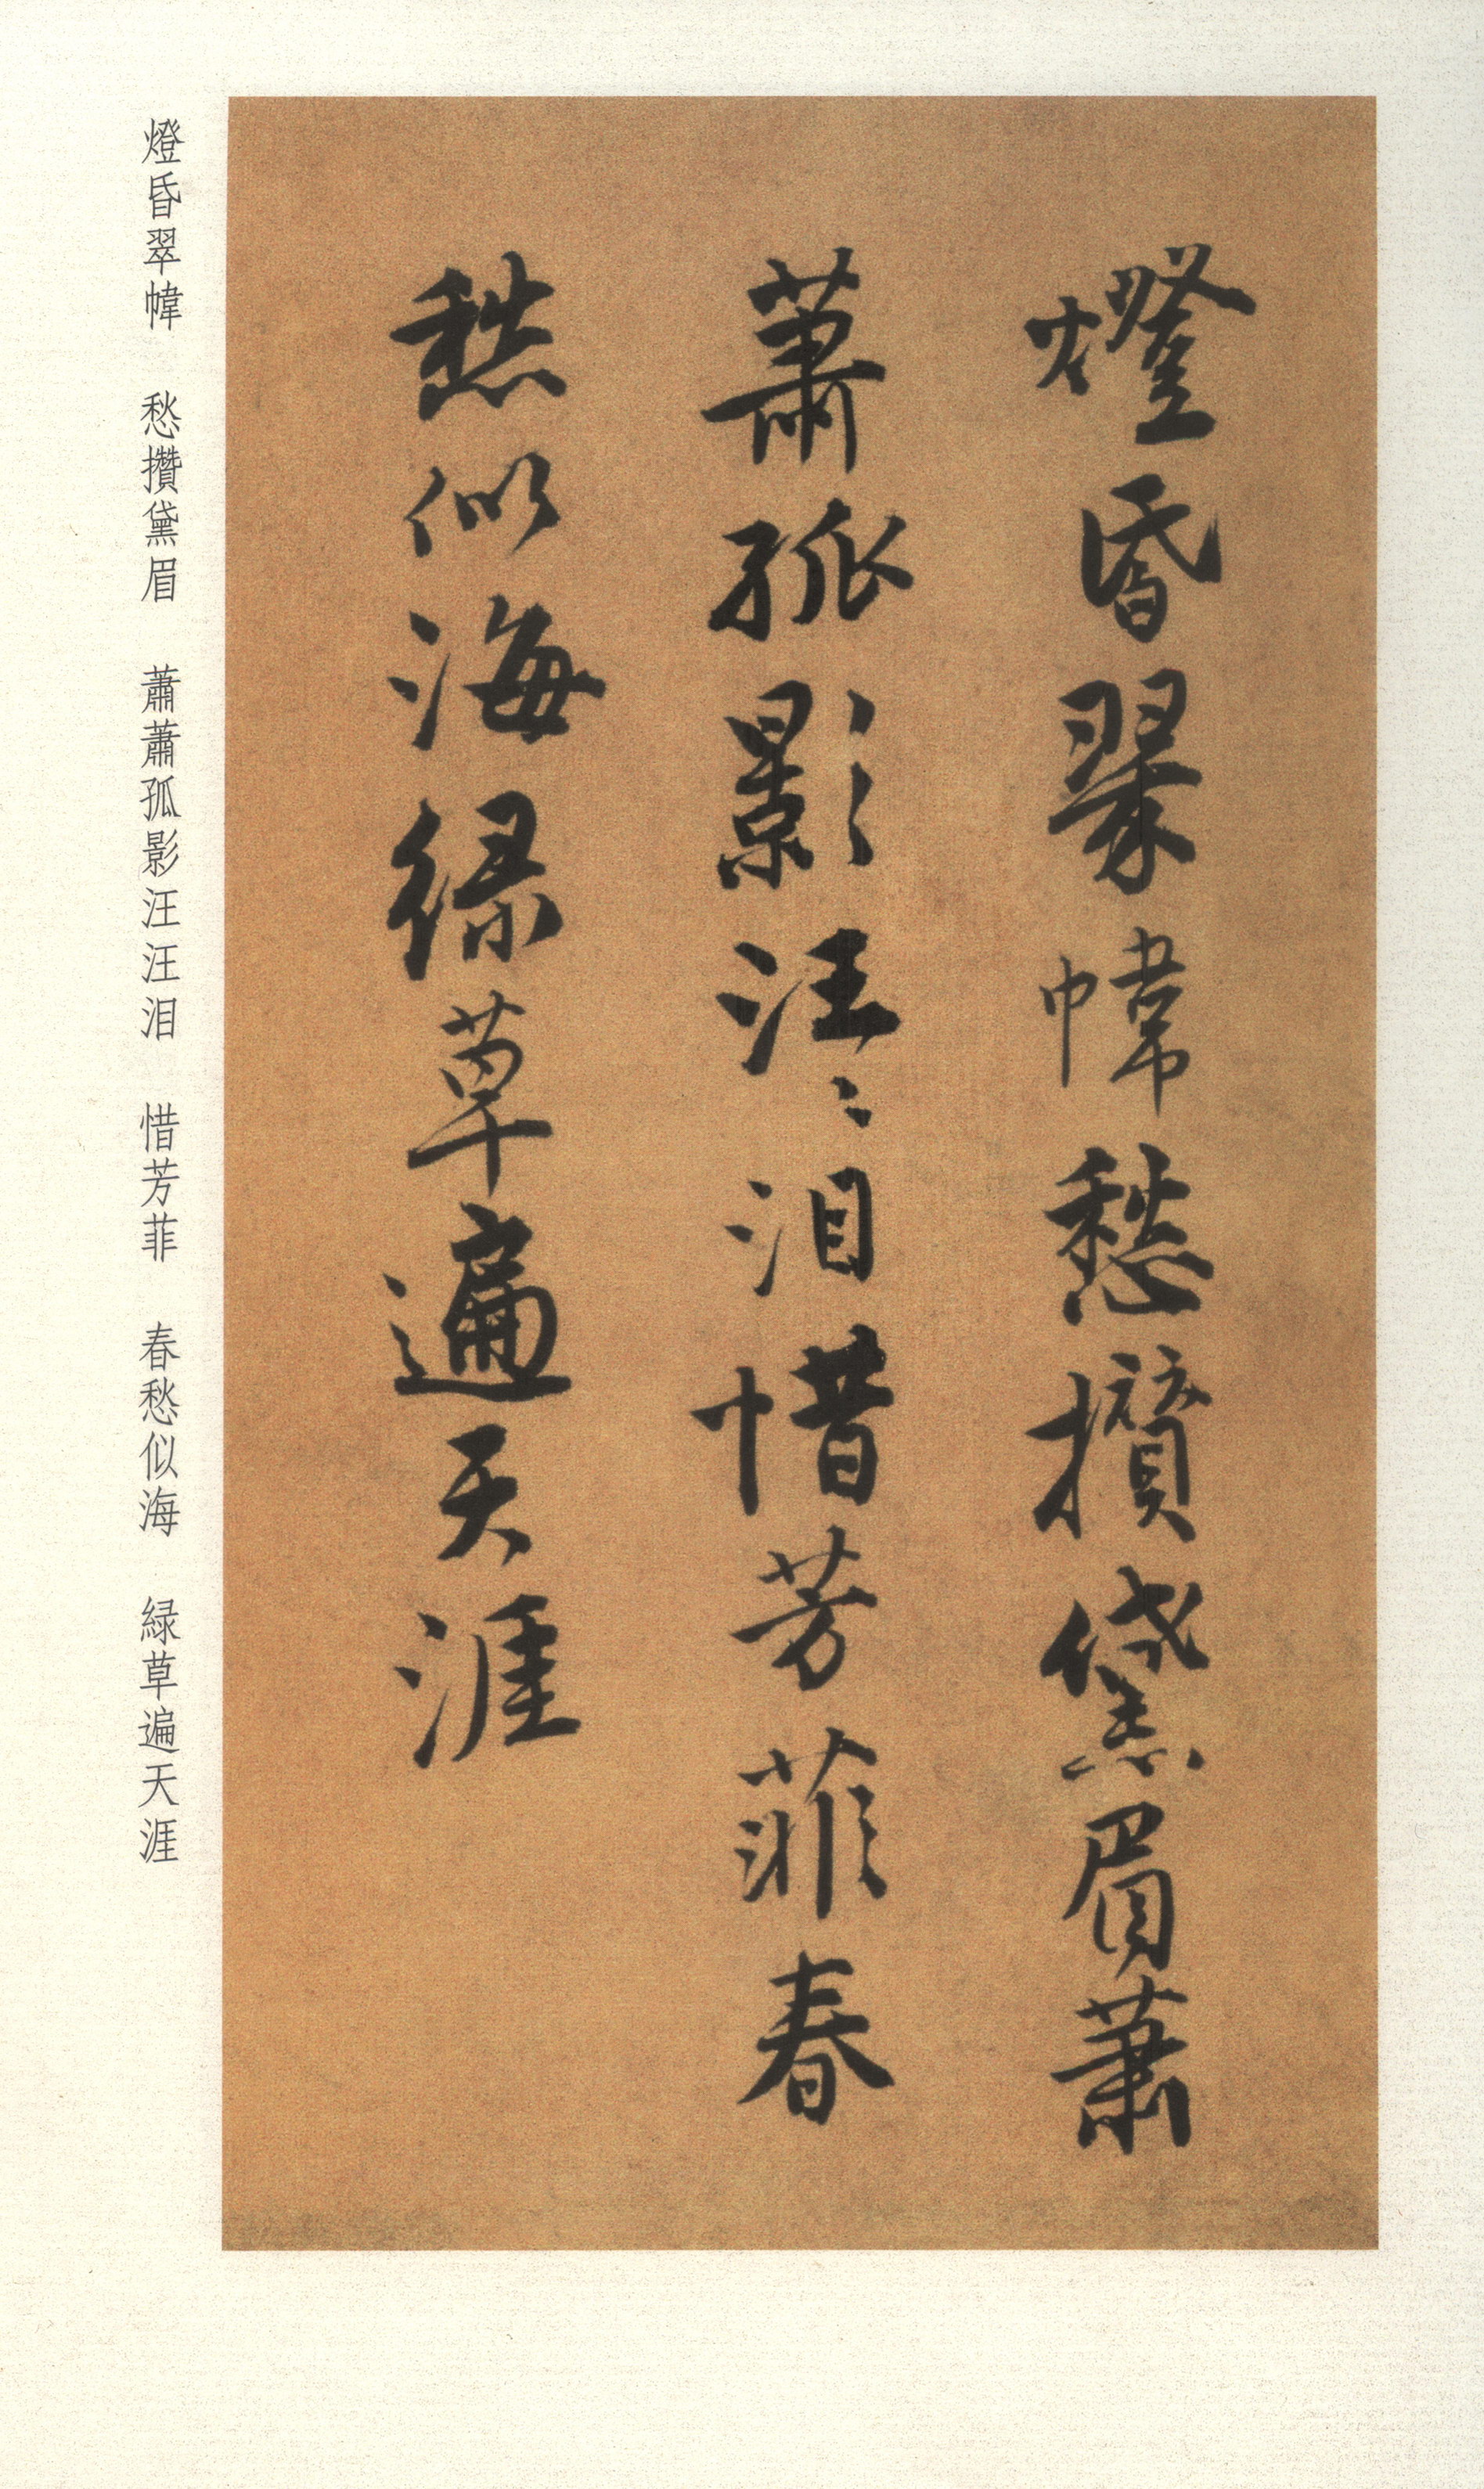 燈昏翠幃愁攢黛眉蕭
蕭孤影汪〻泪惜芳菲春
愁似海緑草遍天涯
燈昏翠幃　愁攢黛眉　蕭蕭孤影汪汪泪　惜芳菲　春愁似海　緑草遍天涯